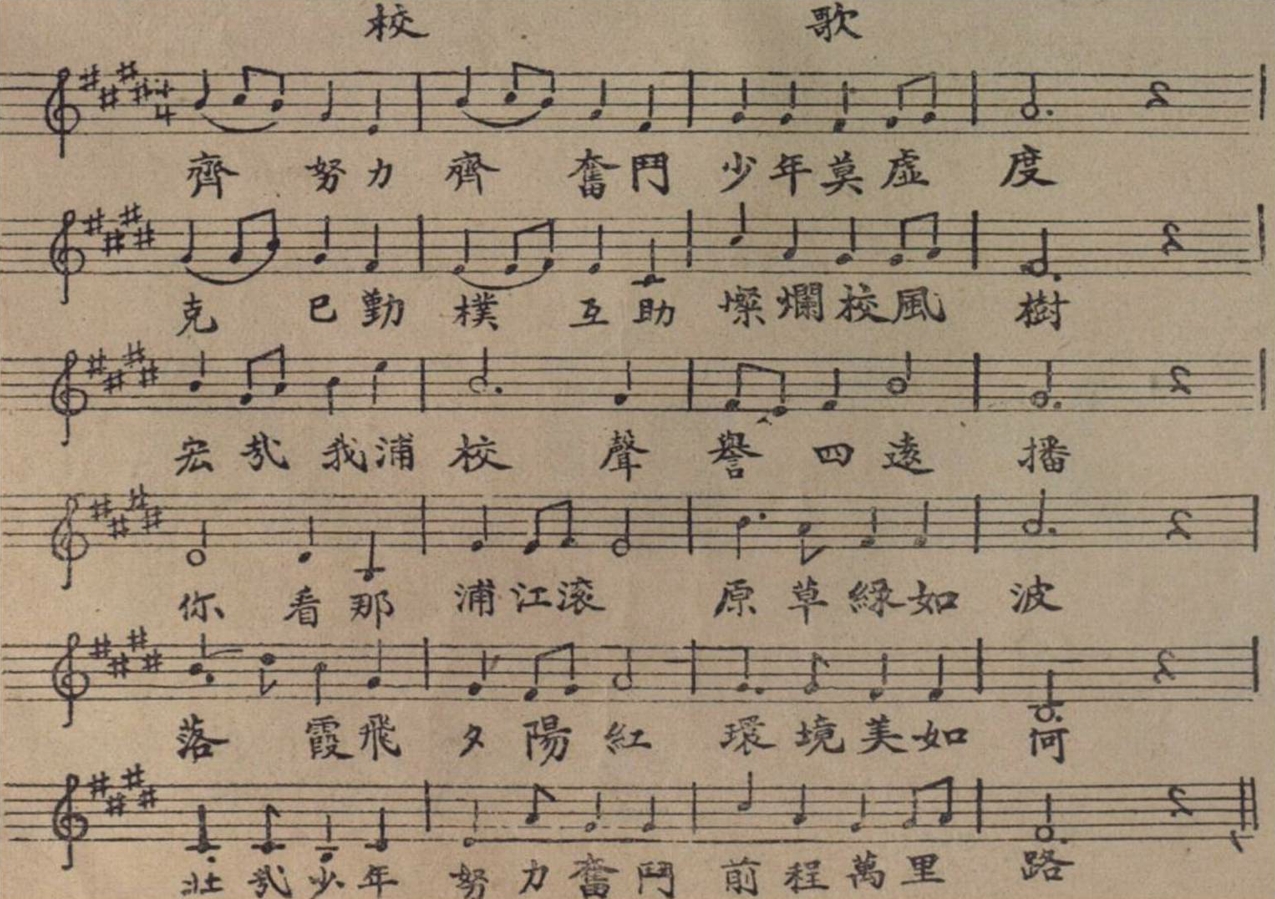 校歌
齊努力齊奮鬥少年莫虛度
克已勤樸互助燦爛校風樹
宏哉我浦校聲譽四遠播
你看那浦江滚原草緑如波
落霞飛夕陽紅環境美如何
壯哉少年努力奮鬥前程萬里路